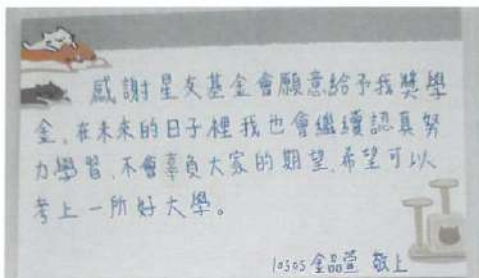 感謝星友基金會願意給予我獎學
金,在未來的日子裡我也會繼續認真努
力學習,不會辜負大家的期望,希望可以
考上一所好大學。
10305 金品萱 敬上